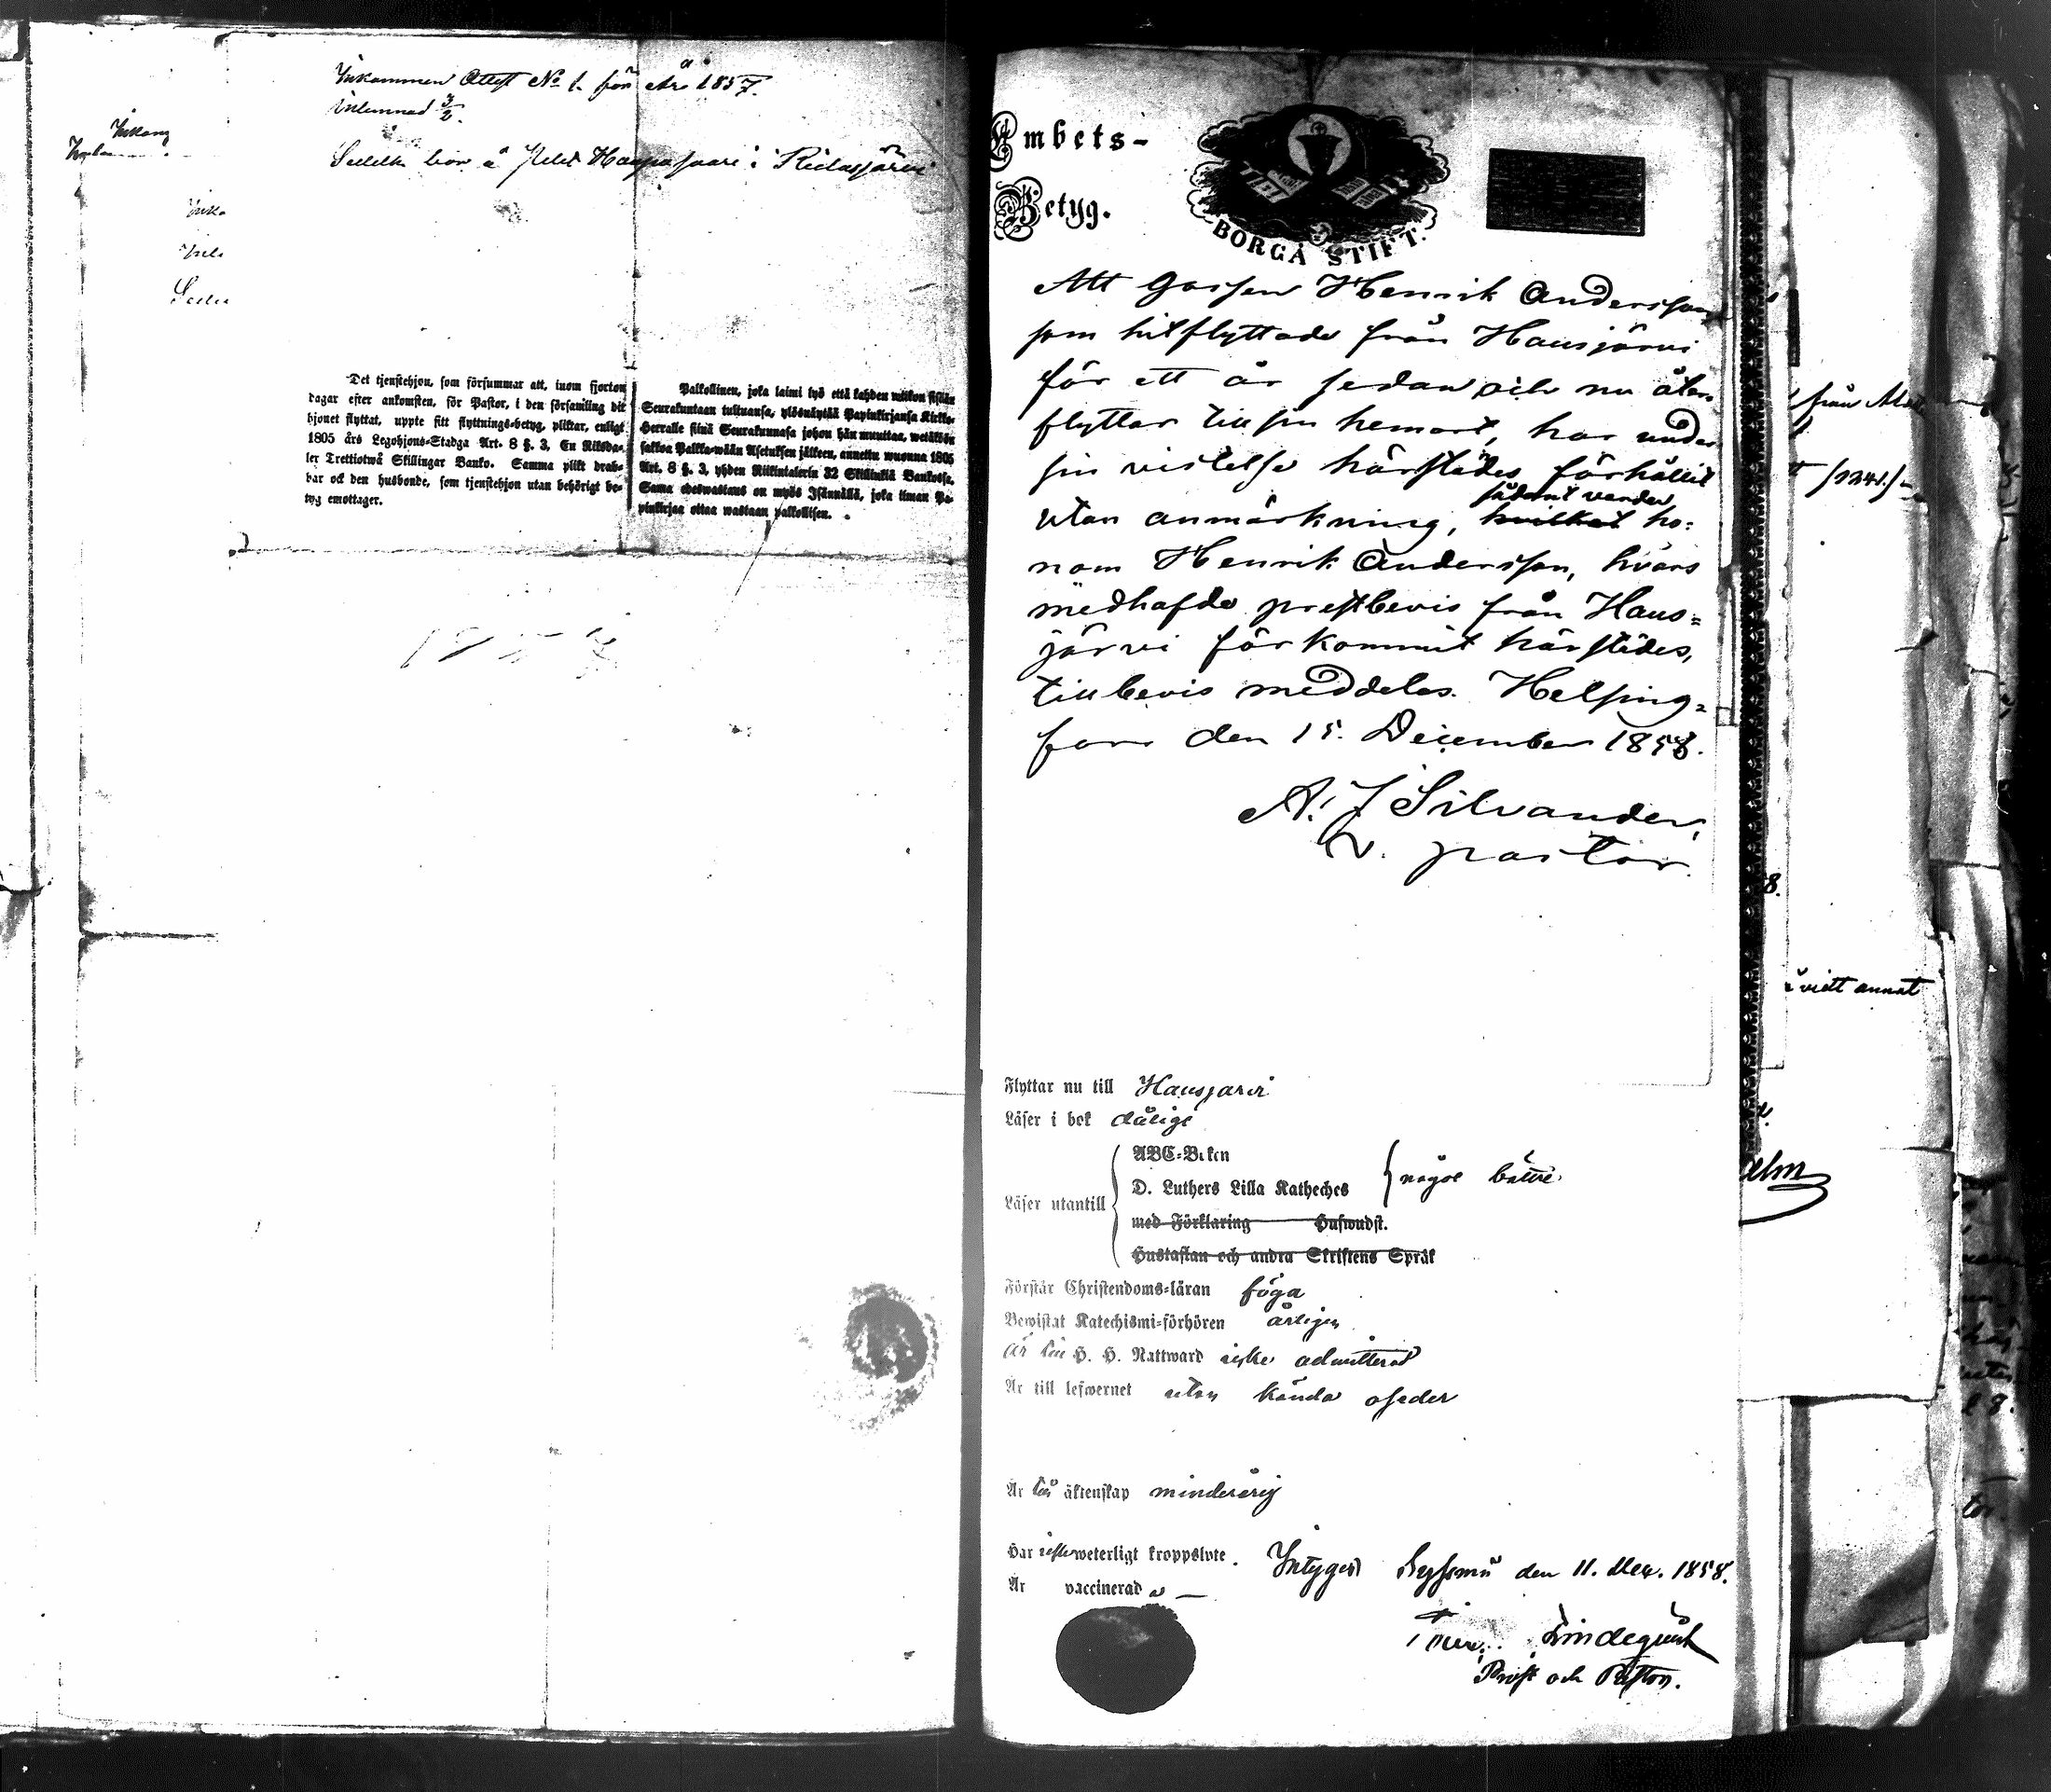 Inkommen Attest No 1. för År 1857.
Inlemnad 3/2.
bor å i Ridasjärvi
Det tjenstehjon, som försummar att, inom fjorton
dagar efter ankomsten, för Pastor, i den församling dit
hjonet flyttat, uppte sitt flyttnings-betyg, pliktar, enligt
1805 års Legohjons-Stadga Art. 8 §. 3, En Riksda-
ler Trettiotwå Skillingar Banko. Samma plikt drab-
bar ock den husbonde, som tjenstehjon utan behörigt be-
tyg emottager.
Palkollinen, joka laimi lyö että kahden wiikon sisään
Seurakuntaan tultuansa, ylösnäyttää Papinkirjansa Kirkko-
Herralle siinä Seurakunnasa johon hän muuttaa, wetäköön
sakkoa Palkka-wään Asetuksen jälkeen, annettu wuonna 1805
Art. 8 §. 3, yhden Riikintalerin 32 Skillinkiä Bankosse.
Sama edeswastaus on myös Isännällä, joka ilman Pa-
pinkirjaa ottaa wastaan palkollisen.
Embets-
Betyg.
BORGÅ STIFT.
Att Gossen Henrik Andersson
som hitflyttade från Hausjärvi
för ett år sedan och nu åter
flyttar till sin hemort, har under
sin vistelse härstädes förhållit
sådant varder
utan anmärkning, hvilket ho=
nom Henrik Andersson, hvars
medhafde prestbevis från Haus=
järvi förkommit härstädes,
till bevis meddelas. Helsing=
fors den 15. December 1858.
A. J Silvander,
v. pastor.
Flyttar nu till Hausjärvi
Läser i bok dåligt
Läser utantill
ABC-Boken
D. Luthers Lilla Katheches
något bättre
med Förklaring Huswudst.
Hustaflan och andra Skriftens Språk
Förstår Christendoms-läran föga
Bewistat Katechismi-förhören årligen
är till H. H. Nattward icke admitterad
Är till lefwernet utan kända oseder
Är till äktenskap minderårig
Har icke weterligt kroppslyte.
Är vaccinerad
Intygas den 11. 1858.
Lindeqvist
Prost och Pastor.
från
vidt annat